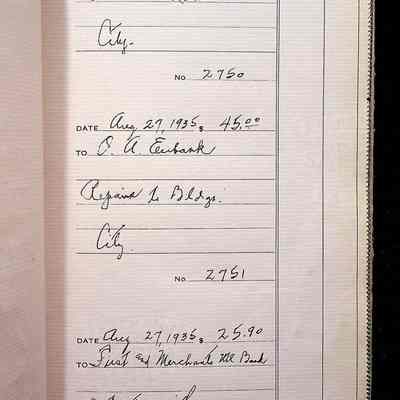 City.
No 2750
DATE Aug 27, 1935 $ 45.00
TO O. A. Eubank
Repairs to Bldgs.
City
No 2751
DATE Aug 27, 1935 $ 25.90
TO First and Merchants Ntl Bank